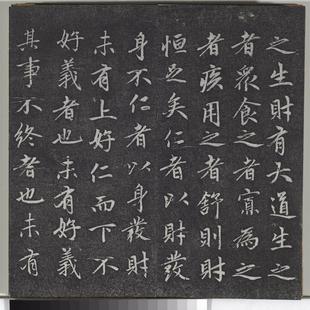 之生財有大道生之
者眾食之者寡為之
者疾用之者舒則財
恒足矣仁者以財發
身不仁者以身發財
未有上好仁而下不
好義者也未有好義
其事不終者也未有